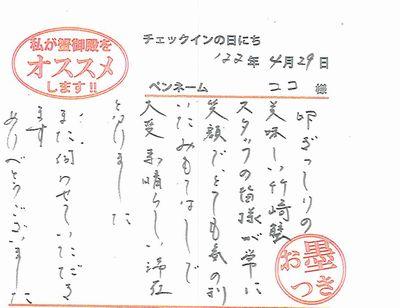 私が蟹御殿を
オススメ
します!!
チェックインの日にち
'22年4月29日
ペンネーム ココ 様
卵ぎっしりの
美味しい竹崎蟹
スタッフの皆様が常に
笑顔で、とても春の利
いたおもてなしで
大変素晴らしい滞在
となりました
また伺わせていただき
ます
ありがとうございました
お墨
つき